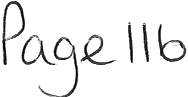 Page 116